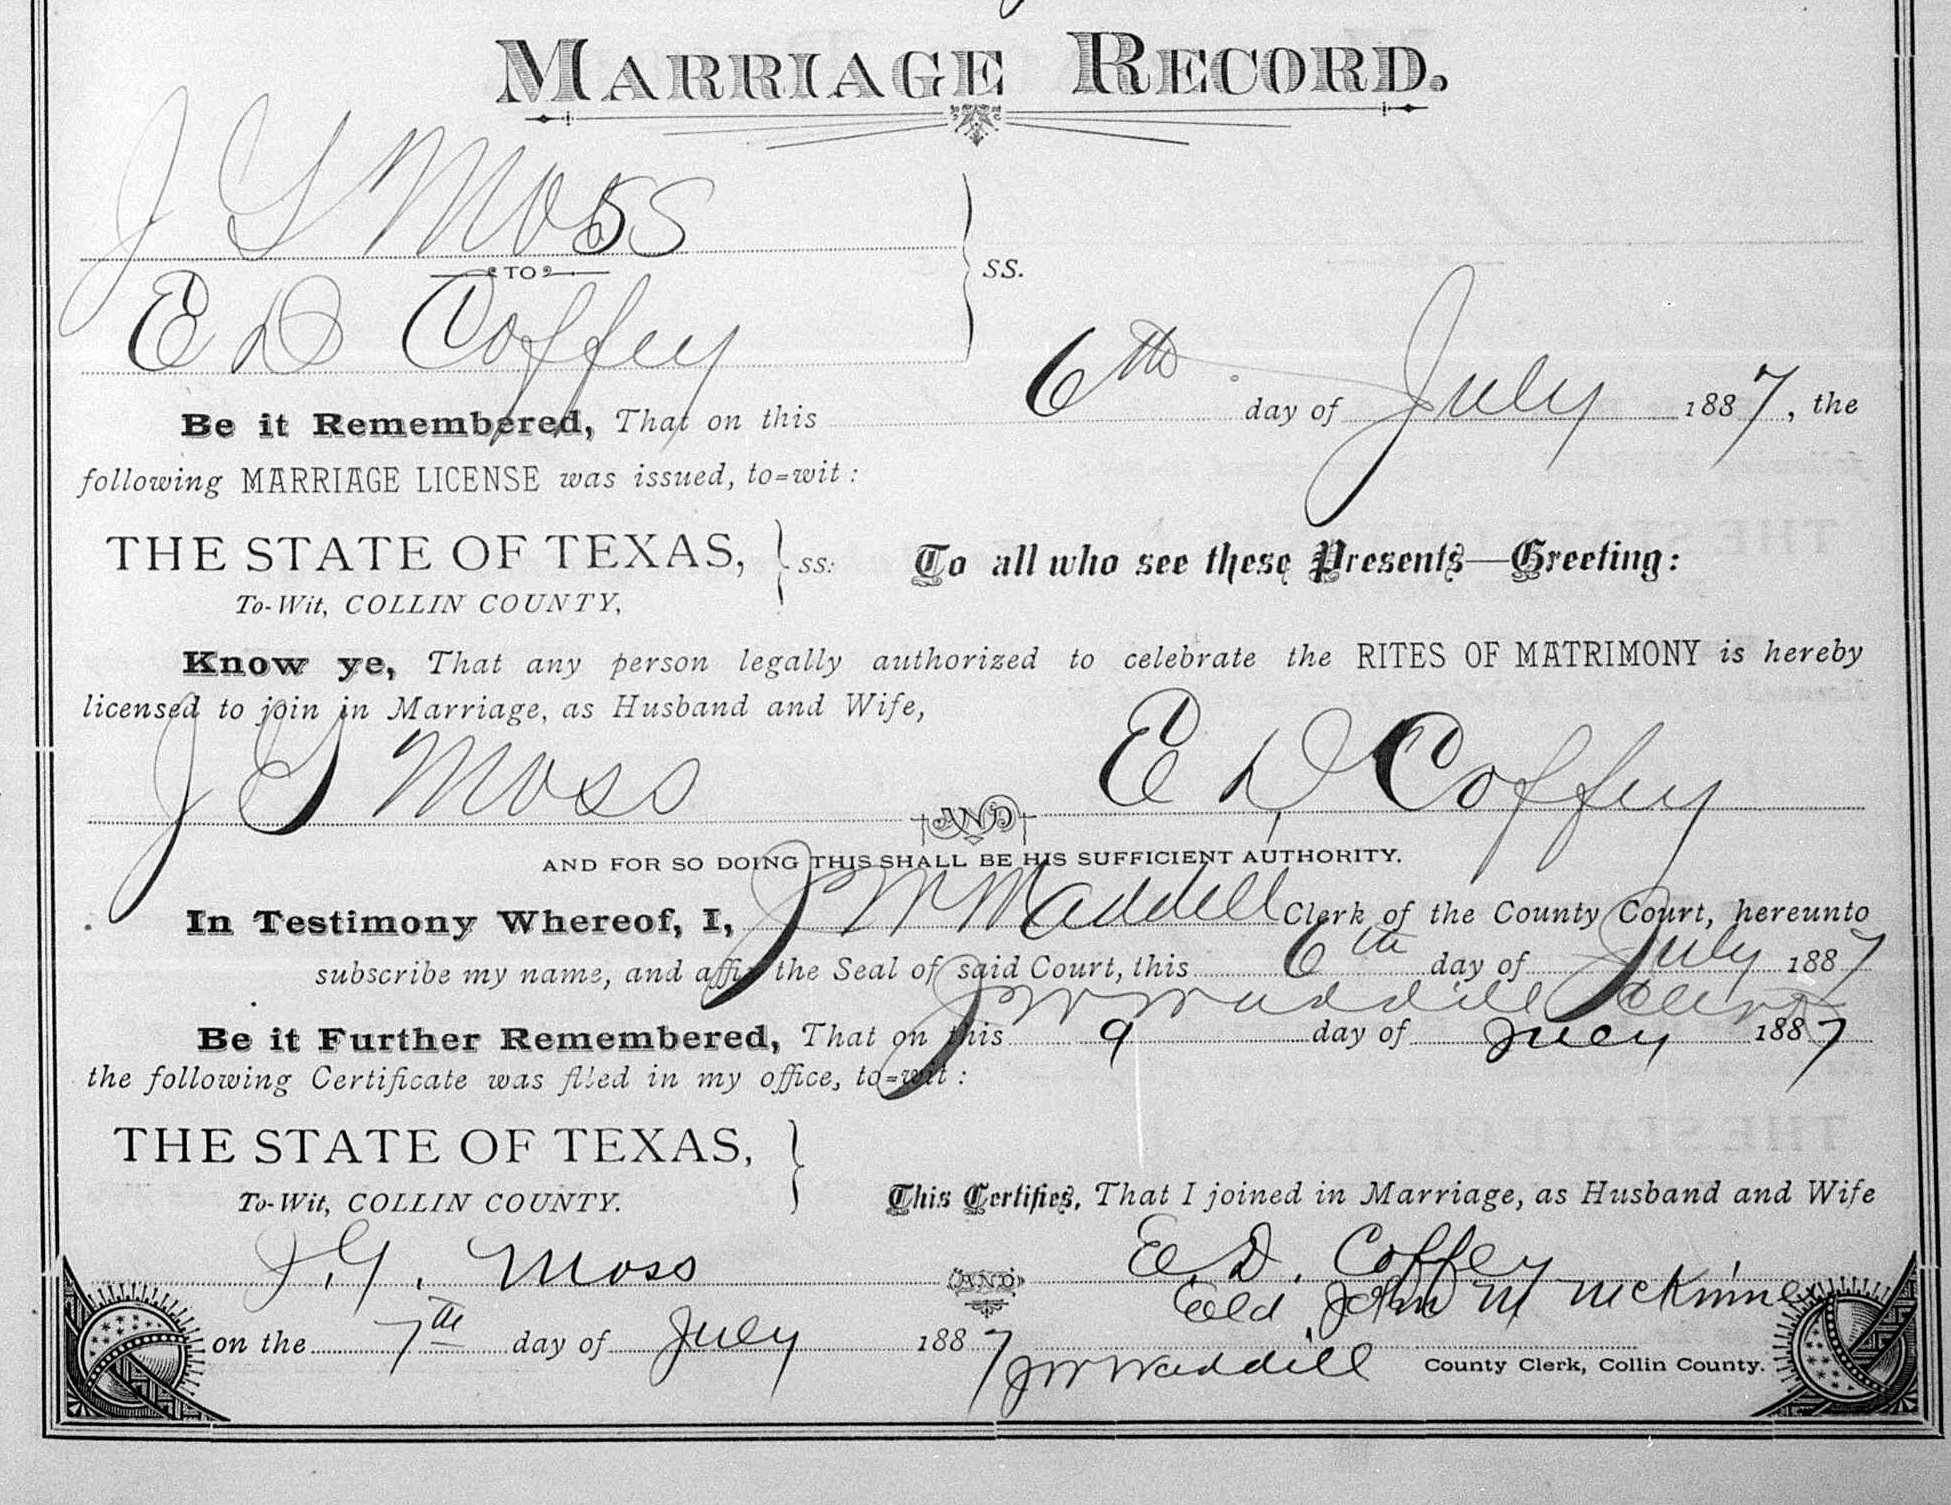 MARRIAGE RECORD.
J G Moss
TO
SS.
E D Coffey
Be it Remembered, That on this 6th day of July 1887, the
following MARRIAGE LICENSE was issued, to-wit:
THE STATE OF TEXAS, SS: To all who see these Presents—Greeting:
To-Wit, COLLIN COUNTY,
Know ye, That any person legally authorized to celebrate the RITES OF MATRIMONY is hereby
licensed to join in Marriage, as Husband and Wife,
J G Moss AND E D Coffey
AND FOR SO DOING THIS SHALL BE HIS SUFFICIENT AUTHORITY.
In Testimony Whereof, I, J W Waddill Clerk of the County Court, hereunto
subscribe my name, and affix the Seal of said Court, this 6th day of July 1887
J W Waddill Clerk
Be it Further Remembered, That on this 9 day of July 1887
the following Certificate was filed in my office, to-wit:
THE STATE OF TEXAS,
To-Wit, COLLIN COUNTY.
This Certifies, That I joined in Marriage, as Husband and Wife
J. G. Moss AND E. D. Coffey
Eld John M McKinney
on the 7th day of July 1887
J W Waddill County Clerk, Collin County.